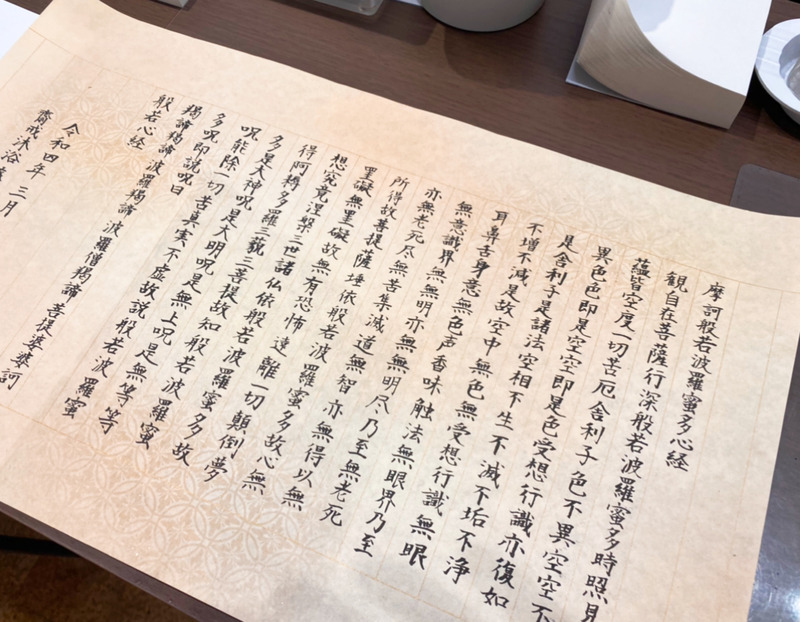 摩訶般若波羅蜜多心経
観自在菩薩行深般若波羅蜜多時照見
蘊皆空度一切苦厄舎利子色不異空空不
異色色即是空空即是色受想行識亦復如
是舎利子是諸法空相不生不滅不垢不浄
不増不減是故空中無色無受想行識無眼
耳鼻舌身意無色声香味触法無眼界乃至
無意識界無無明亦無無明尽乃至無老死
亦無老死尽無苦集滅道無智亦無得以無
所得故菩提薩埵依般若波羅蜜多故心無
罣礙無罣礙故無有恐怖遠離一切顛倒夢
想究竟涅槃三世諸仏依般若波羅蜜多故
得阿耨多羅三藐三菩提故知般若波羅蜜
多是大神呪是大明呪是無上呪是無等等
呪能除一切苦真実不虚故説般若波羅蜜
多呪即説呪曰
羯諦羯諦波羅羯諦波羅僧羯諦菩提婆婆訶
般若心経
令和四年三月
齋戒沐浴